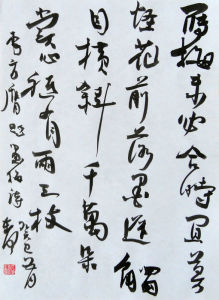 梅未必合時宜莫
怪花前落墨遲觸
目橫斜千萬朵
賞心祗有兩三枝
李方膺題畫梅詩